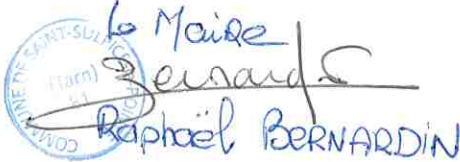 Le Maire
Bernardin
Raphaël BERNARDIN
COMMUNE DE SAINT-SULPICE
(Tarn)
81